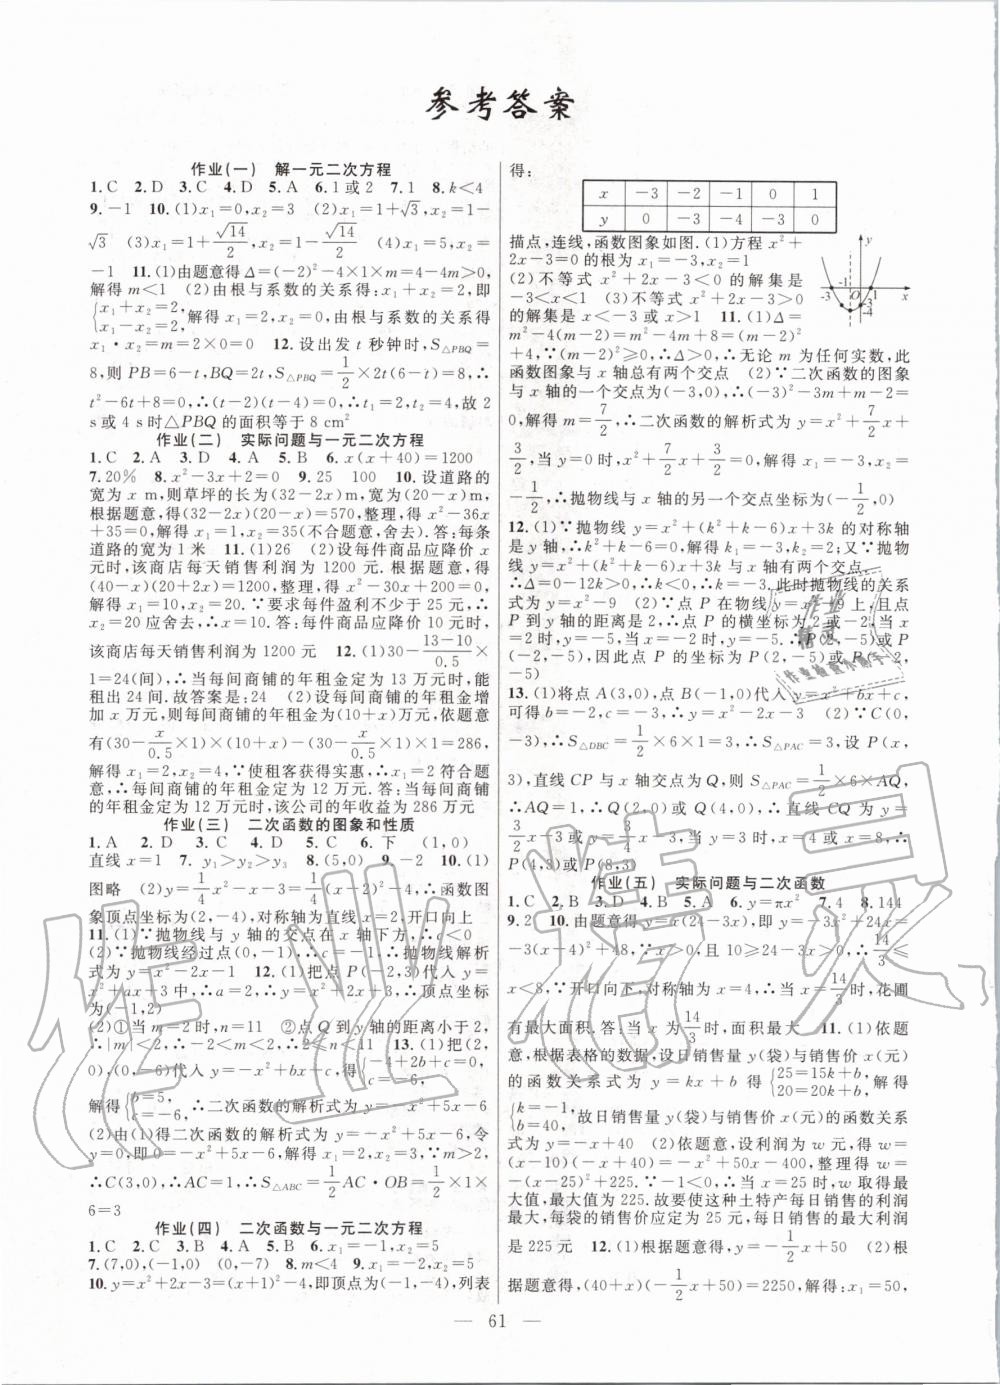 参考答案
作业(一) 解一元二次方程
1.C 2.D 3.C 4.D 5.A 6.1或2 7.1 8.k<4
9.-1 10.(1)x₁=0,x₂=3 (2)x₁=1+√3,x₂=1-
√3 (3)x₁=1+√14/2,x₂=1-√14/2 (4)x₁=5,x₂=
-1 11.(1)由题意得Δ=(-2)²-4×1×m=4-4m>0,
解得m<1 (2)由根与系数的关系得:x₁+x₂=2,即
{x₁+x₂=2, x₁-x₂=2, 解得x₁=2,x₂=0,由根与系数的关系得
x₁·x₂=m=2×0=0 12.设出发t秒钟时,S△PBQ=
8,则PB=6-t,BQ=2t,S△PBQ=1/2×2t(6-t)=8,∴
t²-6t+8=0,∴(t-2)(t-4)=0,∴t₁=2,t₂=4,故2
s或4 s时△PBQ的面积等于8 cm²
作业(二) 实际问题与一元二次方程
1.C 2.A 3.D 4.A 5.B 6.x(x+40)=1200
7.20% 8.x²-3x+2=0 9.25 100 10.设道路的
宽为x m,则草坪的长为(32-2x)m,宽为(20-x)m,
根据题意,得(32-2x)(20-x)=570,整理,得x²-36x
+35=0,解得x₁=1,x₂=35(不合题意,舍去).答:每条
道路的宽为1米 11.(1)26 (2)设每件商品应降价x
元时,该商店每天销售利润为1200元.根据题意,得
(40-x)(20+2x)=1200,整理,得x²-30x+200=0,
解得x₁=10,x₂=20.∵要求每件盈利不少于25元,∴
x₂=20应舍去,∴x=10.答:每件商品应降价10元时,
该商店每天销售利润为1200元 12.(1)30-(13-10)/0.5×
1=24(间),∴当每间商铺的年租金定为13万元时,能
租出24间.故答案是:24 (2)设每间商铺的年租金增
加x万元,则每间商铺的年租金为(10+x)万元,依题意
有(30-x/0.5×1)×(10+x)-(30-x/0.5×1)×1=286,
解得x₁=2,x₂=4,∵使租客获得实惠,∴x₁=2符合题
意,∴每间商铺的年租金定为12万元.答:当每间商铺
的年租金定为12万元时,该公司的年收益为286万元
作业(三) 二次函数的图象和性质
1.A 2.D 3.C 4.D 5.C 6.下 (1,0)
直线x=1 7.y₁>y₂>y₃ 8.(5,0) 9.-2 10.(1)
图略 (2)y=1/4x²-x-3=1/4(x-2)²-4,∴函数图
象顶点坐标为(2,-4),对称轴为直线x=2,开口向上
11.(1)∵抛物线与y轴的交点在x轴下方,∴c<0
(2)∵抛物线经过点(0,-1),∴c=-1,∴抛物线解析
式为y=x²-2x-1 12.(1)把点P(-2,3)代入y=
x²+ax+3中,∴a=2,∴y=x²+2x+3,∴顶点坐标
为(-1,2)
(2)①当m=2时,n=11 ②点Q到y轴的距离小于2,
∴|m|<2,∴-2<m<2,∴2≤n<11 13.(1)把(2,
0),(0,-6)代入y=-1/2x²+bx+c得{-4+2b+c=0, c=-6,
解得{b=5, c=-6, ∴二次函数的解析式为y=-1/2x²+5x-6
(2)由(1)得二次函数的解析式为y=-1/2x²+5x-6,令
y=0,即0=-1/2x²+5x-6,解得x₁=2,x₂=3,∵m>2,
∴C(3,0),∴AC=1,∴S△ABC=1/2AC·OB=1/2×1×
6=3
作业(四) 二次函数与一元二次方程
1.C 2.C 3.B 4.C 5.D 6.x₁=-1,x₂=5
7.(7,0),(-1,0) (0,-7) 8.m<4 9.x₁=-2,x₂=5
10.y=x²+2x-3=(x+1)²-4,即顶点为(-1,-4),列表
得:
x -3 -2 -1 0 1
y 0 -3 -4 -3 0
描点,连线,函数图象如图.(1)方程x²+
2x-3=0的根为x₁=-3,x₂=1
(2)不等式x²+2x-3<0的解集是
-3<x<1 (3)不等式x²+2x-3>0
的解集是x<-3或x>1 11.(1)Δ=
m²-4(m-2)=m²-4m+8=(m-2)²
+4,∵(m-2)²≥0,∴Δ>0,∴无论m为任何实数,此
函数图象与x轴总有两个交点 (2)∵二次函数的图象
与x轴的一个交点为(-3,0),∴(-3)²-3m+m-2=
0,解得m=7/2,∴二次函数的解析式为y=x²+7/2x+
3/2,当y=0时,x²+7/2x+3/2=0,解得x₁=-3,x₂=
-1/2,∴抛物线与x轴的另一个交点坐标为(-1/2,0)
12.(1)∵抛物线y=x²+(k²+k-6)x+3k的对称轴
是y轴,∴k²+k-6=0,解得k₁=-3,k₂=2;又∵抛物
线y=x²+(k²+k-6)x+3k与x轴有两个交点,
∴Δ=0-12k>0,∴k<0,∴k=-3.此时抛物线的关系
式为y=x²-9 (2)∵点P在物线y=x²-9上,且点
P到y轴的距离是2,∴点P的横坐标为2或-2,当x
=2时,y=-5;当x=-2时,y=-5.∴P(2,-5)或P
(-2,-5),因此点P的坐标为P(2,-5)或P(-2,-5)
13.(1)将点A(3,0),点B(-1,0)代入y=x²+bx+c,
可得b=-2,c=-3,∴y=x²-2x-3 (2)∵C(0,
-3),∴S△DBC=1/2×6×1=3,∴S△PAC=3,设P(x,
3),直线CP与x轴交点为Q,则S△PAC=1/2×6×AQ,
∴AQ=1,∴Q(2,0)或Q(4,0),∴直线CQ为y=
3/2x-3或y=3/4x-3,当y=3时,x=4或x=8,∴
P(4,3)或P(8,3)
作业(五) 实际问题与二次函数
1.C 2.B 3.D 4.B 5.A 6.y=πx² 7.4 8.144
9.2 10.由题意得y=x(24-3x),即y=-3x²+24x=
-3(x-4)²+48,∵x>0,且10≥24-3x>0,∴14/3≤
x<8,∵开口向下,对称轴为x=4,∴当x=14/3时,花圃
有最大面积.答:当x为14/3时,面积最大 11.(1)依题
意,根据表格的数据,设日销售量y(袋)与销售价x(元)
的函数关系式为y=kx+b得{25=15k+b, 20=20k+b, 解得
{k=-1, b=40, 故日销售量y(袋)与销售价x(元)的函数关系
式为y=-x+40 (2)依题意,设利润为w元,得w=
(x-10)(-x+40)=-x²+50x-400,整理得w=
-(x-25)²+225.∵-1<0,∴当x=25时,w取得最
大值,最大值为225.故要使这种土特产每日销售的利润
最大,每袋的销售价应定为25元,每日销售的最大利润
是225元 12.(1)根据题意得,y=-1/2x+50 (2)根
据题意得,(40+x)(-1/2x+50)=2250,解得:x₁=50,
— 61 —
作业精灵